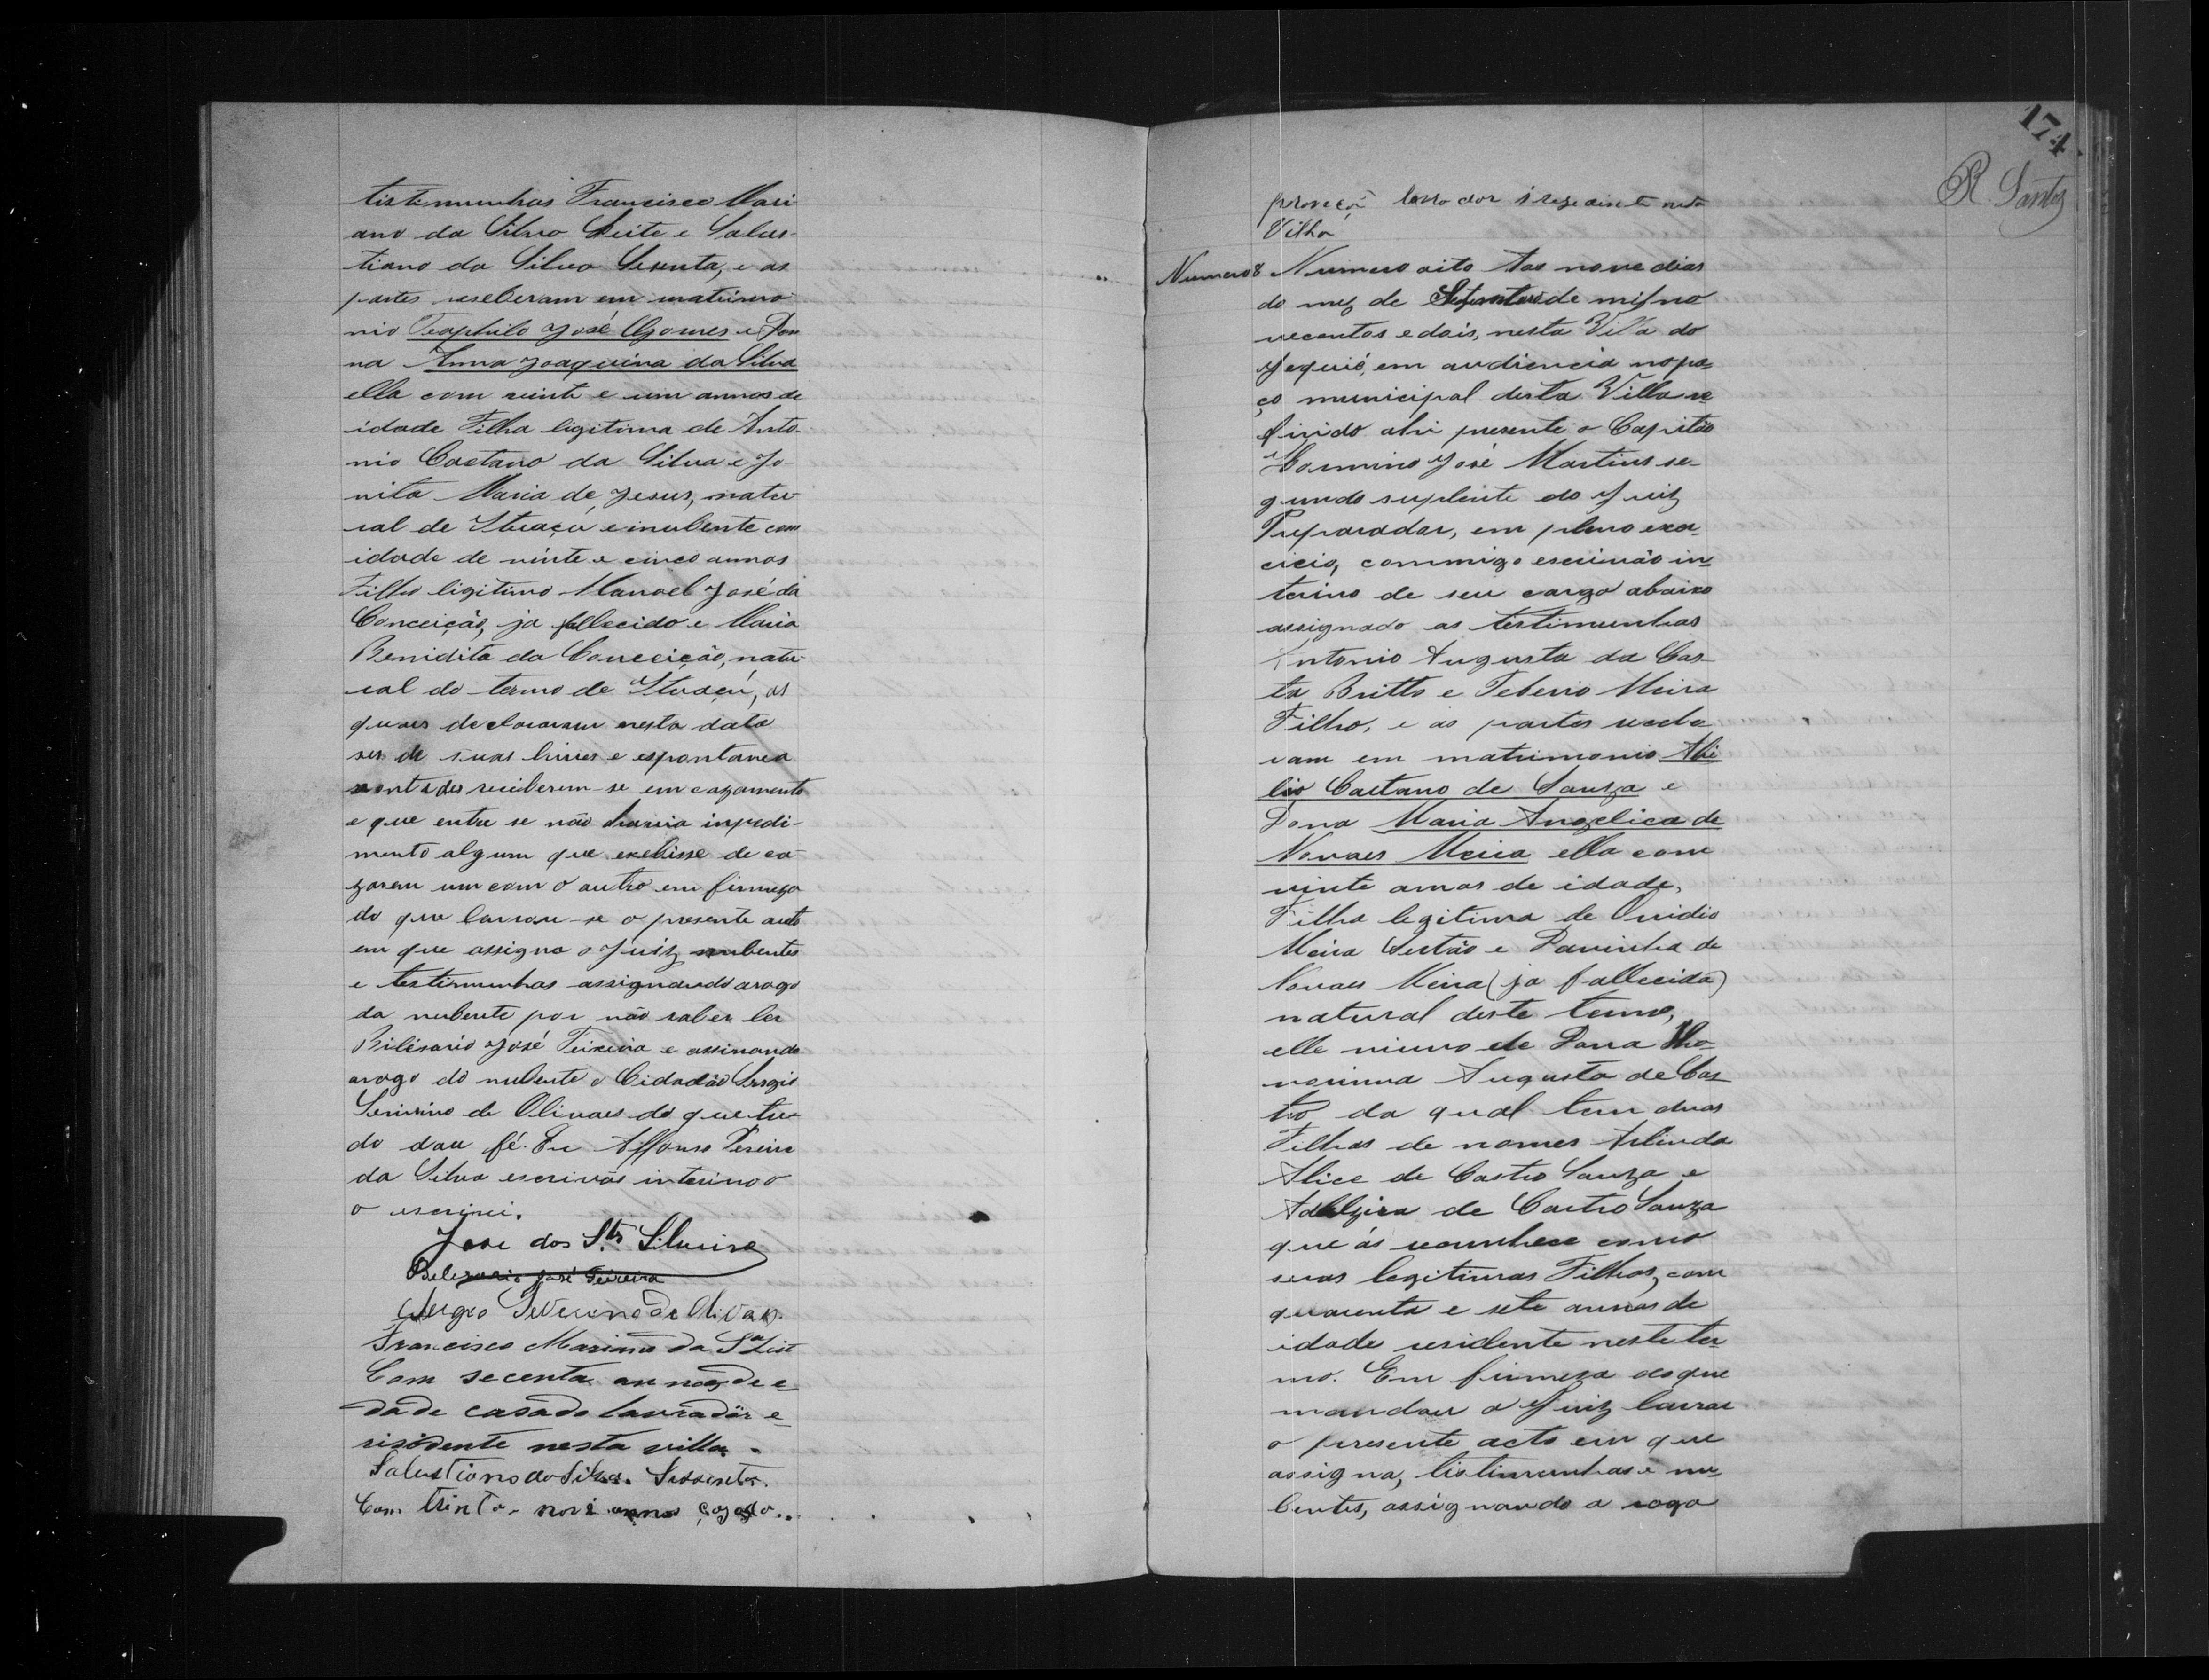 tistimunhas Francisco Mari
ano da Silva Leite e Salus-
tiano da Silva Sesenta, e as
partes reseberam em matrimo-
nio Teophilo José Gomes e Don
na Anna Joaquina da Silva
ella com vinte e um annos de
idade Filha ligitima de Anto-
nio Caetano da Silva e Jo-
nita Maria de Jesus, natu-
ral de Ituaçú e inubente com
idade de vinte e cinco annos
Filho ligitimo Manoel José da
Conceição, ja fallecido e Maria
Benidita da Conceição, natu-
ral do termo de Ituaçú, os
quaes declararam nesta data
ser de suas livres e espontanea
vontades reciberem-se em cazamento
e que entre se não havia inpedi-
mento algum que exebisse de ca-
zarem um com o outro em firmeza
do que lavrou-se o presente auto
em que assigna o Juiz nubentes
e testimunhas assignando arogo
da nubente por não saber ler
Bilisario José Teixeira e assinando
arogo do nubente o Cidadão Sergio
Sevirino de Olivaes do que tu-
do dou fé. Eu Affonso Pereira
da Silva escrivão interino o
o escrivi.
Jose dos Sts. Silveira
Belizario José Teixeira
Sergio Severino de Olivaes
Francisco Mariano da Sa Leit
Com secenta annos de e
dade casado lavrador e
risidente nesta villa.
Salustiano da Silva Sessenta.
Com trinta nove annos cazado
174
R. Santos
lavrador i rezedente nesta
Vilha
Numero 8 Numero oito Aos nove dias
do mez de Setembro de mil no
vecentos e dois, nesta Villa do
Jequié, em audiencia no pa-
ço municipal desta Villa re
firido ahi presente o Capitão
José Martins se-
gundo suplente do Juiz
Preparador, em pleno exer
cicio, commigo escrivão in
terino de seu cargo abaixo
assignado as testimunhas
Antonio Augusto da Cos
ta Britto e Teberio Meira
Filho, e as partes receba
ram em matrimonio Abi
lio Caetano de Souza e
Dona Maria Angelica de
Novaes Meira ella com
vinte annos de idade,
Filha legitima de Ovidio
Meira Sertão e Davinha de
Novaes Meira (ja fallecida)
natural deste termo,
elle viuvo de Dona Ho-
norinna Augusta de Cas
tro da qual tem duas
Filhas de nomes Arlinda
Alice de Castro Souza e
Adalgisa de Castro Souza
que ás reconhece como
suas legitimas Filhas, com
quarenta e sete annos de
idade residente neste ter
mo. Em firmeza do que
mandou o Juiz lavrar
o presente acto em que
assigna, tistimunhas e nu
bentes, assignando a rogo